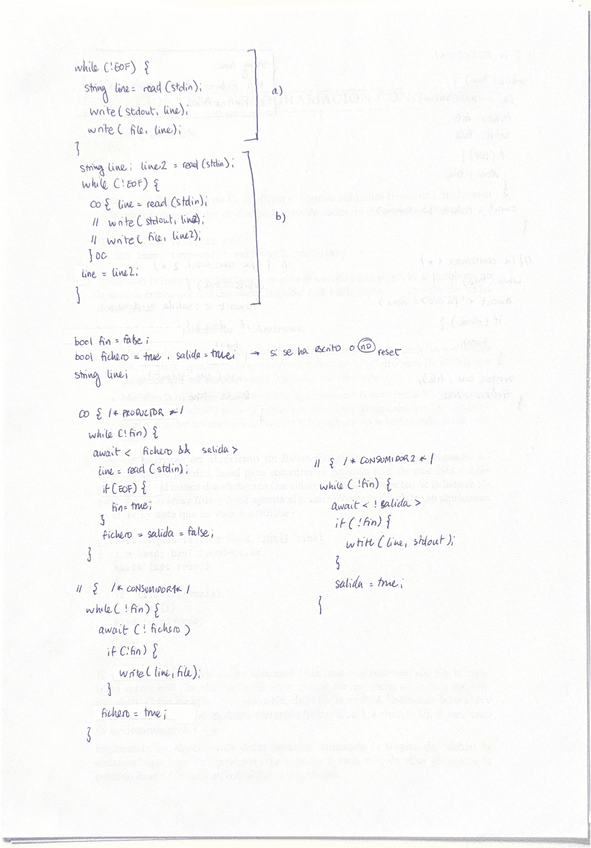 while (!EOF) {
string line = read (stdin);
write (stdout, line);
write ( file, line);
}
a)
string line; line2 = read (stdin);
while (!EOF) {
CO { line = read (stdin);
// write (stdout, line2);
// write ( file, line2);
} OC
line = line2;
}
b)
bool fin = false;
bool fichero = true, salida = true; → si se ha escrito o no reset
string line;
CO { /* PRODUCTOR */
while (!fin) {
await < fichero && salida >
line = read (stdin);
if (EOF) {
fin = true;
}
fichero = salida = false;
}
// { /* CONSUMIDOR1 */
while ( !fin) {
await (! fichero )
if (!fin) {
write (line, file);
}
fichero = true;
}
// { /* CONSUMIDOR 2 */
while ( !fin) {
await < ! salida >
if ( !fin) {
write (line, stdout);
}
salida = true;
}